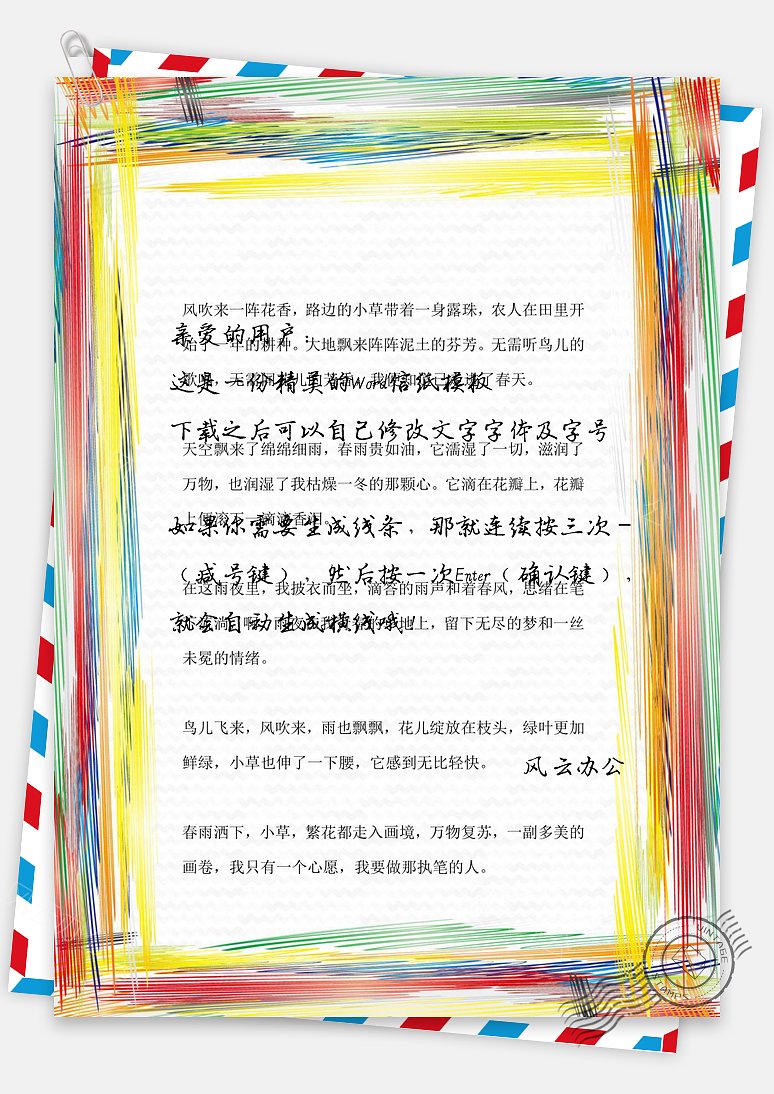 风吹来一阵花香，路边的小草带着一身露珠，农人在田里开
亲爱的用户：
年的耕种。大地飘来阵阵泥土的芬芳。无需听鸟儿的
了春天。
这是一份精美的Word信纸模板
下载之后可以自己修改文字字体及字号
天空飘来了绵绵细雨，春雨贵如油，它濡湿了一切，滋润了
万物，也润湿了我枯燥一冬的那颗心。它滴在花瓣上，花瓣
如果你需要生成线条，那就连续按三次－
（减号键），然后按一次Enter（确认键），
在这雨夜里，我披衣而坐，滴答的雨声和着春风，思绪在笔
就会自动生成横线哦！
地上，留下无尽的梦和一丝
未冕的情绪。
鸟儿飞来，风吹来，雨也飘飘，花儿绽放在枝头，绿叶更加
鲜绿，小草也伸了一下腰，它感到无比轻快。
风云办公
春雨洒下，小草，繁花都走入画境，万物复苏，一副多美的
画卷，我只有一个心愿，我要做那执笔的人。
VINTAGE